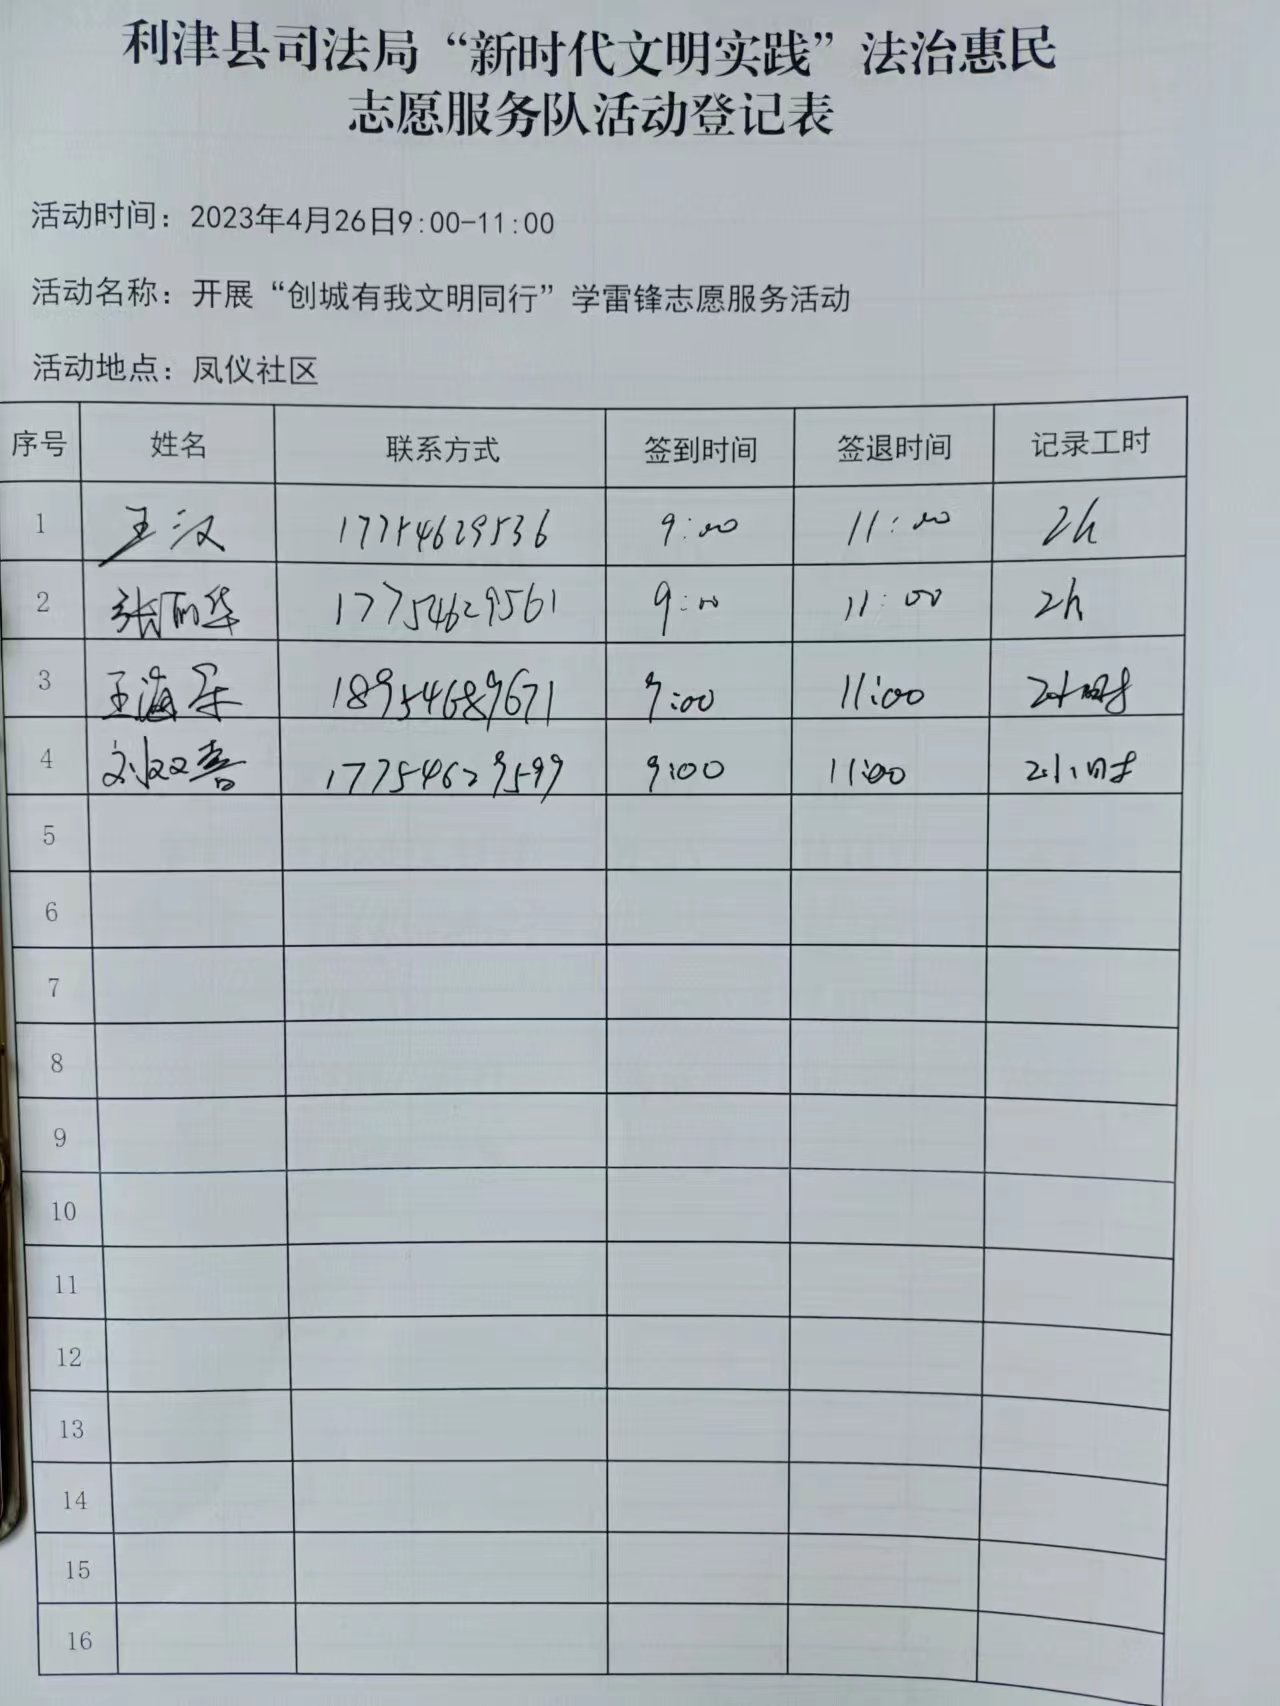 利津县司法局“新时代文明实践”法治惠民
志愿服务队活动登记表
活动时间：2023年4月26日9:00-11:00
活动名称：开展“创城有我文明同行”学雷锋志愿服务活动
活动地点：凤仪社区
序号 姓名 联系方式 签到时间 签退时间 记录工时
1 王汉 17754629536 9:00 11:00 2h
2 张丽华 17754629561 9:00 11:00 2h
3 王海 18954689671 9:00 11:00 2小时
4 刘双喜 17754629599 9:00 11:00 2小时
5
6
7
8
9
10
11
12
13
14
15
16